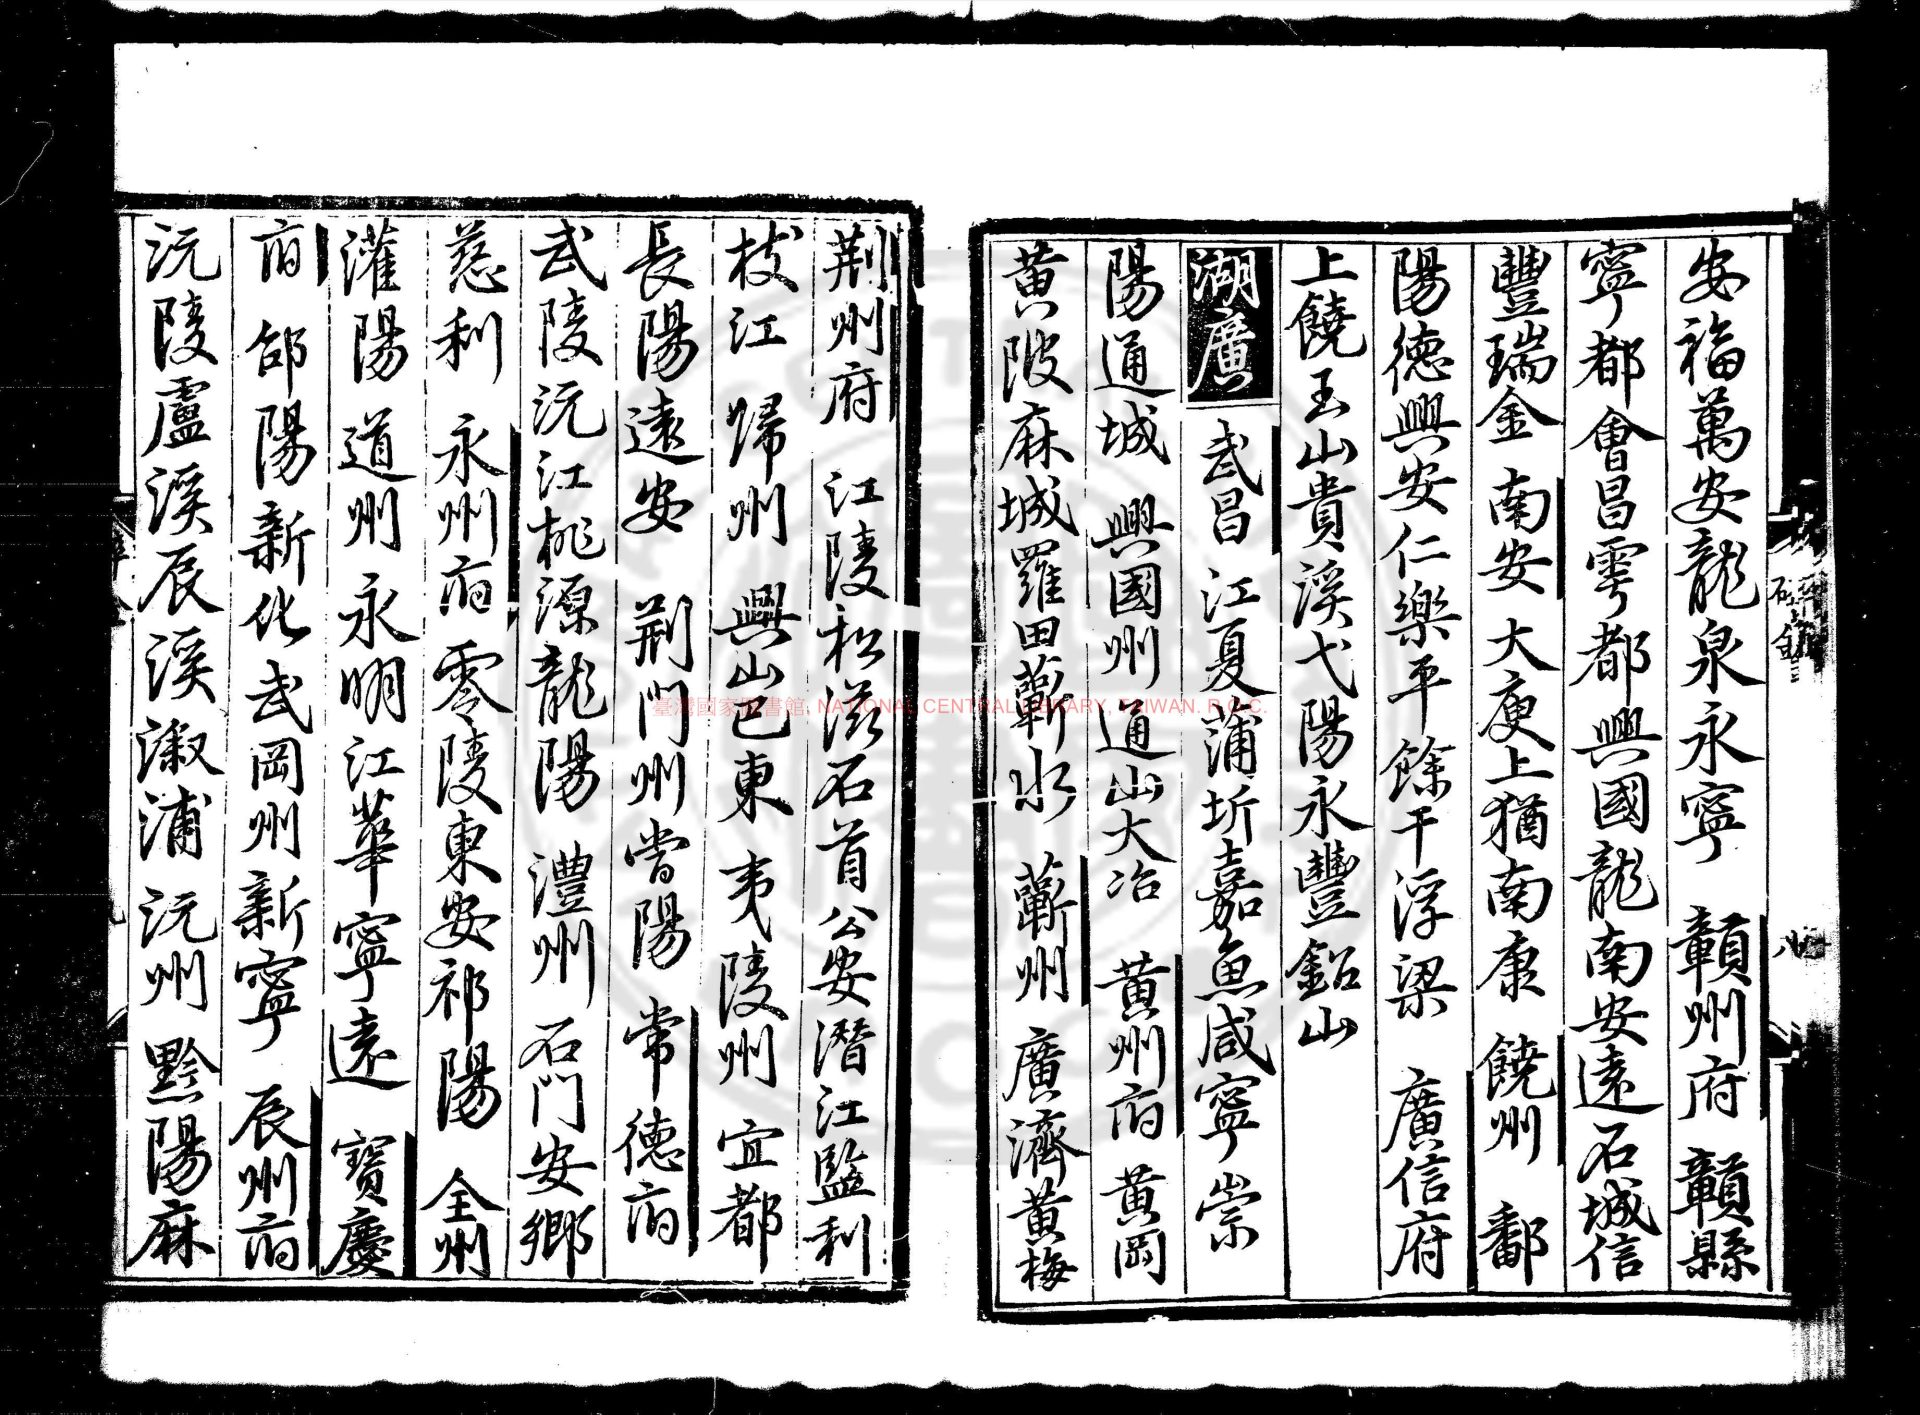 安福萬安龍泉永寧 贛州府 贛縣
寧都會昌雩都興國龍南安遠石城信
豐瑞金 南安 大庾上猶南康 饒州 鄱
陽德興安仁樂平餘干浮梁 廣信府
上饒玉山貴溪弋陽永豐鉛山
湖廣 武昌 江夏蒲圻嘉魚咸寧崇
陽通城 興國州 通山大冶 黄州府 黄岡
黄陂麻城羅田蘄水 蘄州 廣濟黄梅
荆州府 江陵松滋石首公安潛江監利
枝江 歸州 興山巴東 夷陵州 宜都
長陽遠安 荆門州當陽 常德府
武陵沅江桃源龍陽 澧州 石門安鄉
慈利 永州府 零陵東安祁陽 全州
灌陽 道州 永明江華寧遠 寶慶
府 邵陽新化武岡州新寧 辰州府
沅陵盧溪辰溪漵浦 沅州 黔陽麻
臺灣國家圖書館, NATIONAL CENTRAL LIBRARY, TAIWAN. R.O.C.